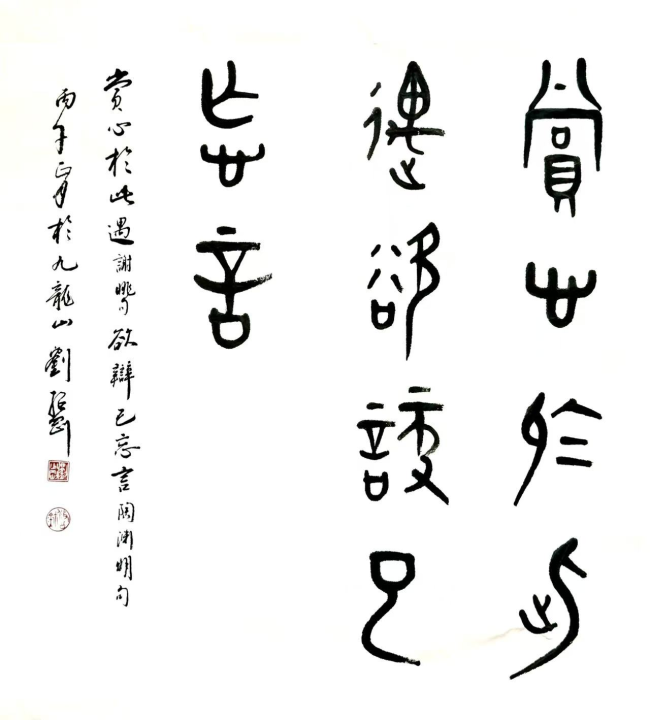 賞心於此
遇欲辯已
忘言
賞心於此遇謝眺句欲辯已忘言陶渊明句
丙午正月於九龍山劉